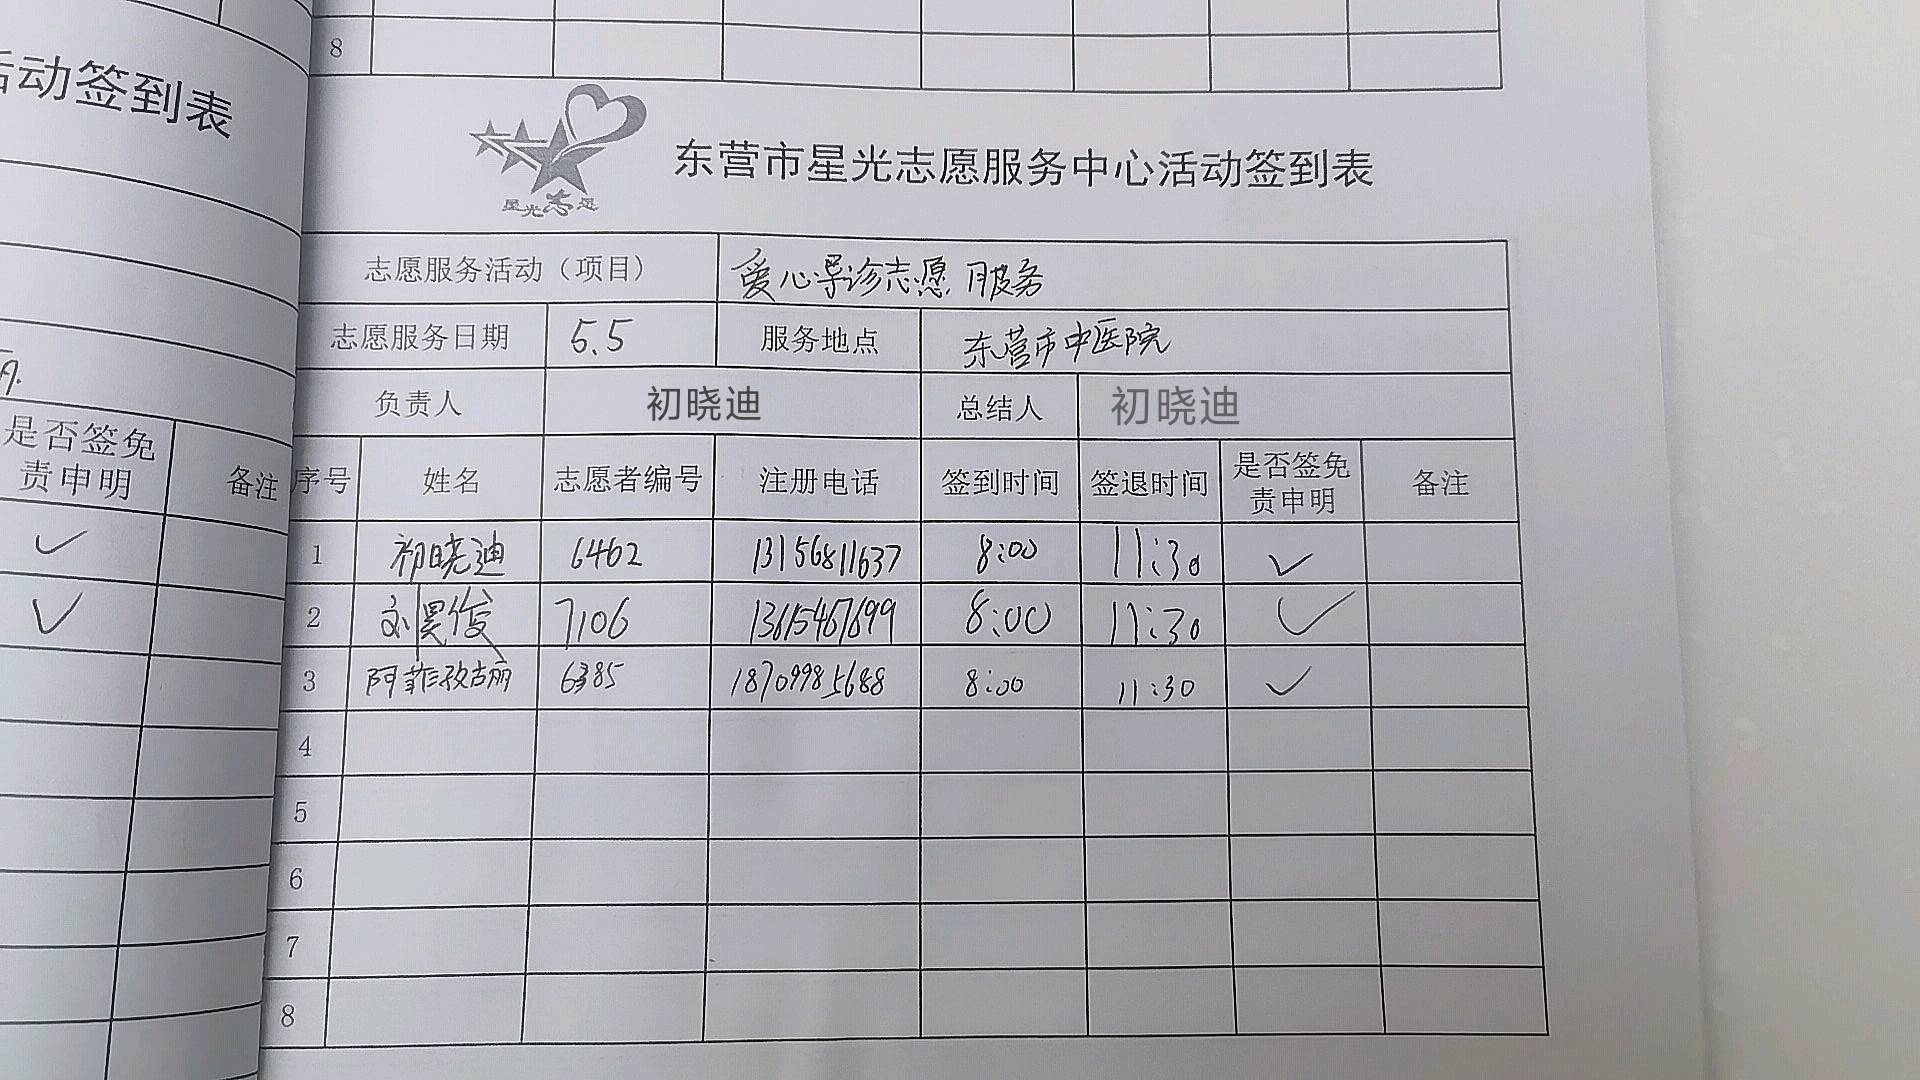 8
活动签到表
是否签免
责申明
备注
星光志愿
东营市星光志愿服务中心活动签到表
志愿服务活动（项目） 爱心导诊志愿服务
志愿服务日期 5.5 服务地点 东营市中医院
负责人 初晓迪 总结人 初晓迪
序号 姓名 志愿者编号 注册电话 签到时间 签退时间 是否签免责申明 备注
1 初晓迪 6462 13156811637 8:00 11:30 ✓
2 刘昊俊 7106 13615467699 8:00 11:30 ✓
3 阿菲孜古丽 6385 18709985688 8:00 11:30 ✓
4
5
6
7
8